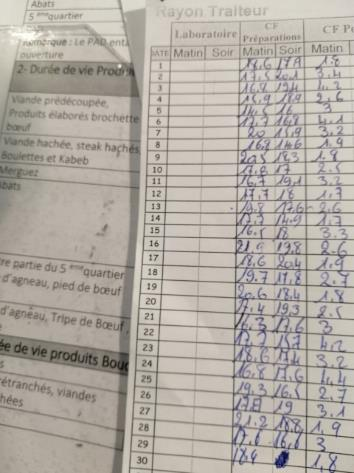 Abats
5 ème quartier
Remarque : Le PAD
ouverture
2- Durée de vie
Viande prédécoupée,
Produits élaborés brochette
bœuf
Viande hachée, steak hachés
Boulettes et Kabeb
Merguez
bats
re partie du 5 ème quartier
d'agneau, pied de bœuf
d'agneau, Tripe de Bœuf,
ée de vie produits
rétranchés, viandes
hées
Rayon Traiteur
Laboratoire CF Préparations
DATE Matin Soir Matin Soir Matin
1 18.6 17.8 1.8
2 17.5 20.1 3.4
3 16.8 19.4
4 15.9 18.9 2.6
5 14.5 16 3
6 17.7 16.8 4.1
7 20 15.9 3.2
8 16.8 14.6 1.9
9 20.5 18.3 1.8
10 17.8 17 2.5
11 16.7 19.1 3.2
12 17.7 18 1.7
13 19.8 17.6 2.6
14 17.7 14.9 1.7
15 16.5 18 3.3
16 21.9 19.8 2.6
17 18.6 20.4 1.9
18 19.7 17.8 2.7
19 20.6 18.4 1.8
20 17.4 19.3 2.5
21 16.3 17.6 3
22 17.7 15.7 4.2
23 18.6 17.4 3.2
24 16.8 17.6 4.4
25 19.3 16.5 2.7
26 17.8 19 3.1
27 21.2 18.8 1.9
28 17.6 16.6 3
29 18.4 1.8
30